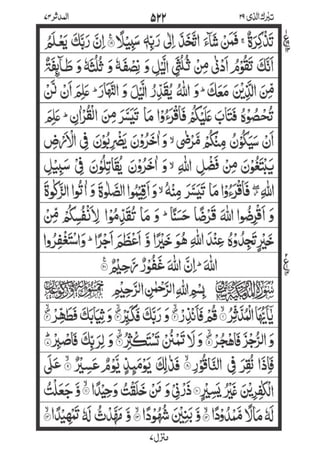 تبٰرك الذى ٢٩ ۵۲۲ المدثر ٧٣
تَذْكِرَةٌ ۚ فَمَنْ شَآءَ اتَّخَذَ اِلٰى رَبِّهٖ سَبِيْلًا ۞ اِنَّ رَبَّكَ يَعْلَمُ
اَنَّكَ تَقُوْمُ اَدْنٰى مِنْ ثُلُثَىِ الَّيْلِ وَ نِصْفَهٗ وَ ثُلُثَهٗ وَ طَآئِفَةٌ
مِّنَ الَّذِيْنَ مَعَكَ ؕ وَ اللّٰهُ يُقَدِّرُ الَّيْلَ وَ النَّهَارَ ؕ عَلِمَ اَنْ لَّنْ
تُحْصُوْهُ فَتَابَ عَلَيْكُمْ فَاقْرَءُوْا مَا تَيَسَّرَ مِنَ الْقُرْاٰنِ ؕ عَلِمَ
اَنْ سَيَكُوْنُ مِنْكُمْ مَّرْضٰى ۙ وَ اٰخَرُوْنَ يَضْرِبُوْنَ فِى الْاَرْضِ
يَبْتَغُوْنَ مِنْ فَضْلِ اللّٰهِ ۙ وَ اٰخَرُوْنَ يُقَاتِلُوْنَ فِىْ سَبِيْلِ
اللّٰهِ ۖ فَاقْرَءُوْا مَا تَيَسَّرَ مِنْهُ ۙ وَ اَقِيْمُوا الصَّلٰوةَ وَ اٰتُوا الزَّكٰوةَ
وَ اَقْرِضُوا اللّٰهَ قَرْضًا حَسَنًا ؕ وَ مَا تُقَدِّمُوْا لِاَنْفُسِكُمْ مِّنْ
خَيْرٍ تَجِدُوْهُ عِنْدَ اللّٰهِ هُوَ خَيْرًا وَّ اَعْظَمَ اَجْرًا ؕ وَ اسْتَغْفِرُوا
اللّٰهَ ؕ اِنَّ اللّٰهَ غَفُوْرٌ رَّحِيْمٌ ۞
بِسْمِ اللّٰهِ الرَّحْمٰنِ الرَّحِيْمِ
يٰۤاَيُّهَا الْمُدَّثِّرُ ۞ قُمْ فَاَنْذِرْ ۞ وَ رَبَّكَ فَكَبِّرْ ۞ وَ ثِيَابَكَ فَطَهِّرْ ۞
وَ الرُّجْزَ فَاهْجُرْ ۞ وَ لَا تَمْنُنْ تَسْتَكْثِرُ ۞ وَ لِرَبِّكَ فَاصْبِرْ ۞
فَاِذَا نُقِرَ فِى النَّاقُوْرِ ۞ فَذٰلِكَ يَوْمَئِذٍ يَّوْمٌ عَسِيْرٌ ۞ عَلَى
الْكٰفِرِيْنَ غَيْرُ يَسِيْرٍ ۞ ذَرْنِىْ وَ مَنْ خَلَقْتُ وَحِيْدًا ۞ وَّ جَعَلْتُ
لَهٗ مَالًا مَّمْدُوْدًا ۞ وَّ بَنِيْنَ شُهُوْدًا ۞ وَّ مَهَّدْتُّ لَهٗ تَمْهِيْدًا ۞
منزل ٧